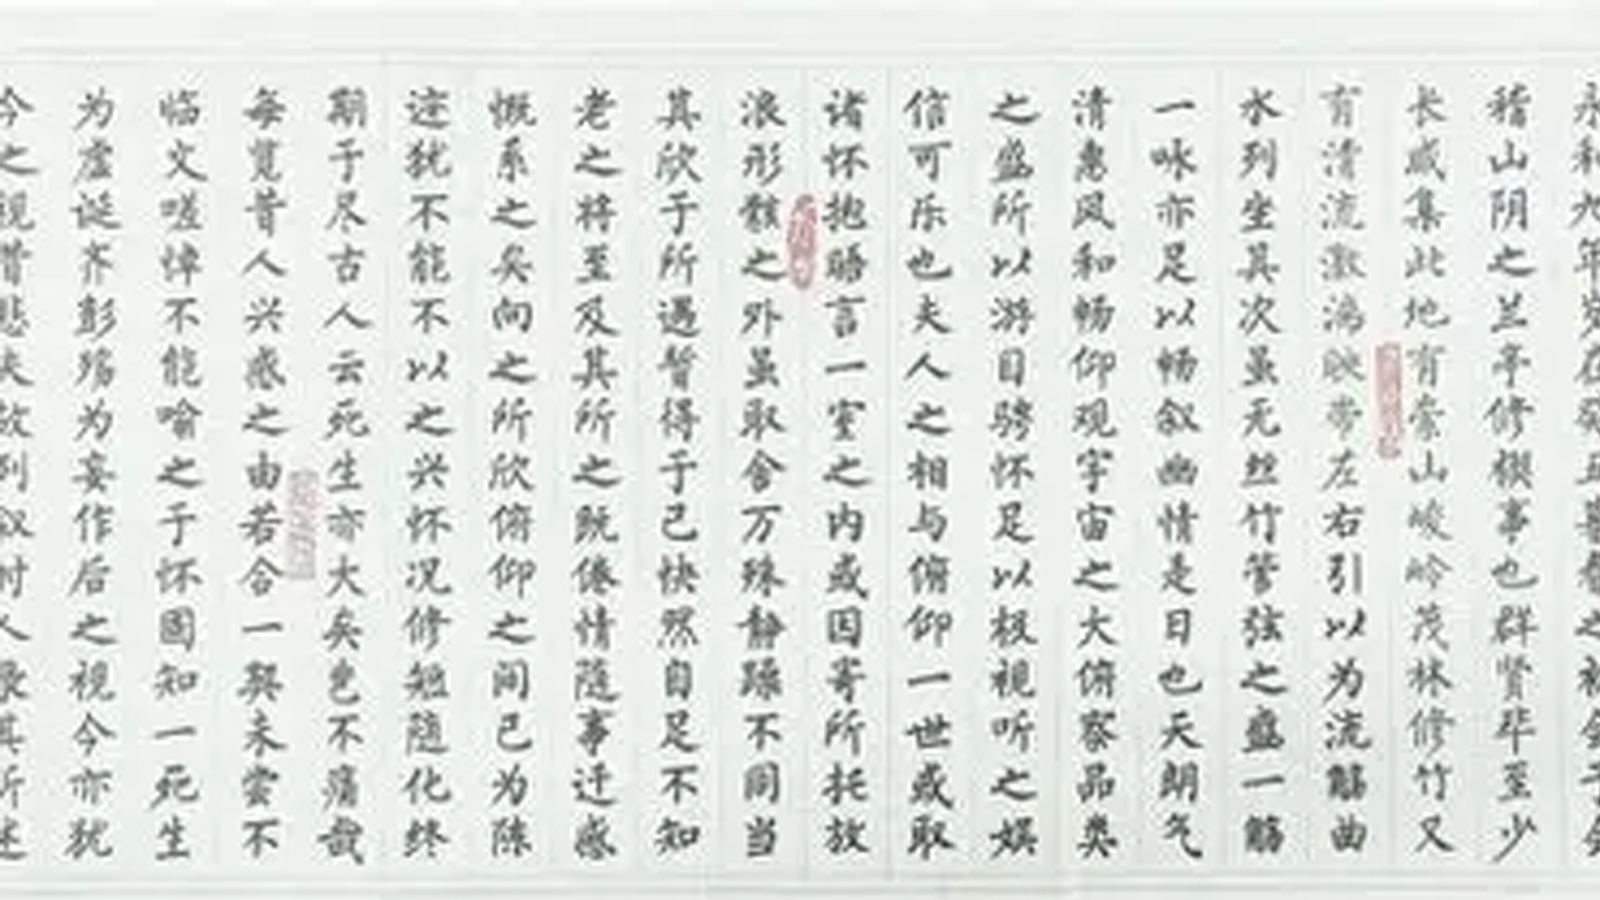 永和九年岁在癸丑暮春之初会于会
稽山阴之兰亭修禊事也群贤毕至少
长咸集此地有崇山峻岭茂林修竹又
有清流激湍映带左右引以为流觞曲
水列坐其次虽无丝竹管弦之盛一觞
一咏亦足以畅叙幽情是日也天朗气
清惠风和畅仰观宇宙之大俯察品类
之盛所以游目骋怀足以极视听之娱
信可乐也夫人之相与俯仰一世或取
诸怀抱晤言一室之内或因寄所托放
浪形骸之外虽取舍万殊静躁不同当
其欣于所遇暂得于己快然自足不知
老之将至及其所之既倦情随事迁感
慨系之矣向之所欣俯仰之间已为陈
迹犹不能不以之兴怀况修短随化终
期于尽古人云死生亦大矣岂不痛哉
每览昔人兴感之由若合一契未尝不
临文嗟悼不能喻之于怀固知一死生
为虚诞齐彭殇为妄作后之视今亦犹
今之视昔悲夫故列叙时人录其所述